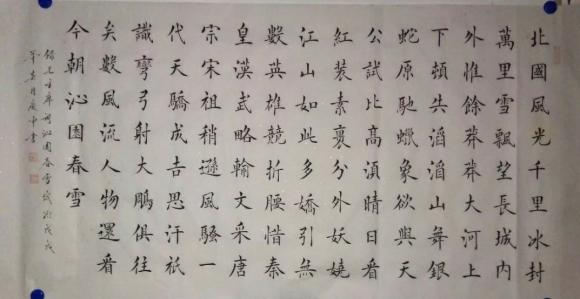 北國風光千里冰封
萬里雪飄望長城内
外惟餘莽莽大河上
下頓失滔滔山舞銀
蛇原馳蠟象欲與天
公試比高湏晴日看
紅裝素裹分外妖嬈
江山如此多嬌引無
數英雄競折腰惜秦
皇漢武略輸文采唐
宗宋祖稍遜風騷一
代天驕成吉思汗祇
識彎弓射大鵬俱往
矣數風流人物還看
今朝沁園春雪
錄毛主席詞沁園春雪歲於戊戌
年 月 中書